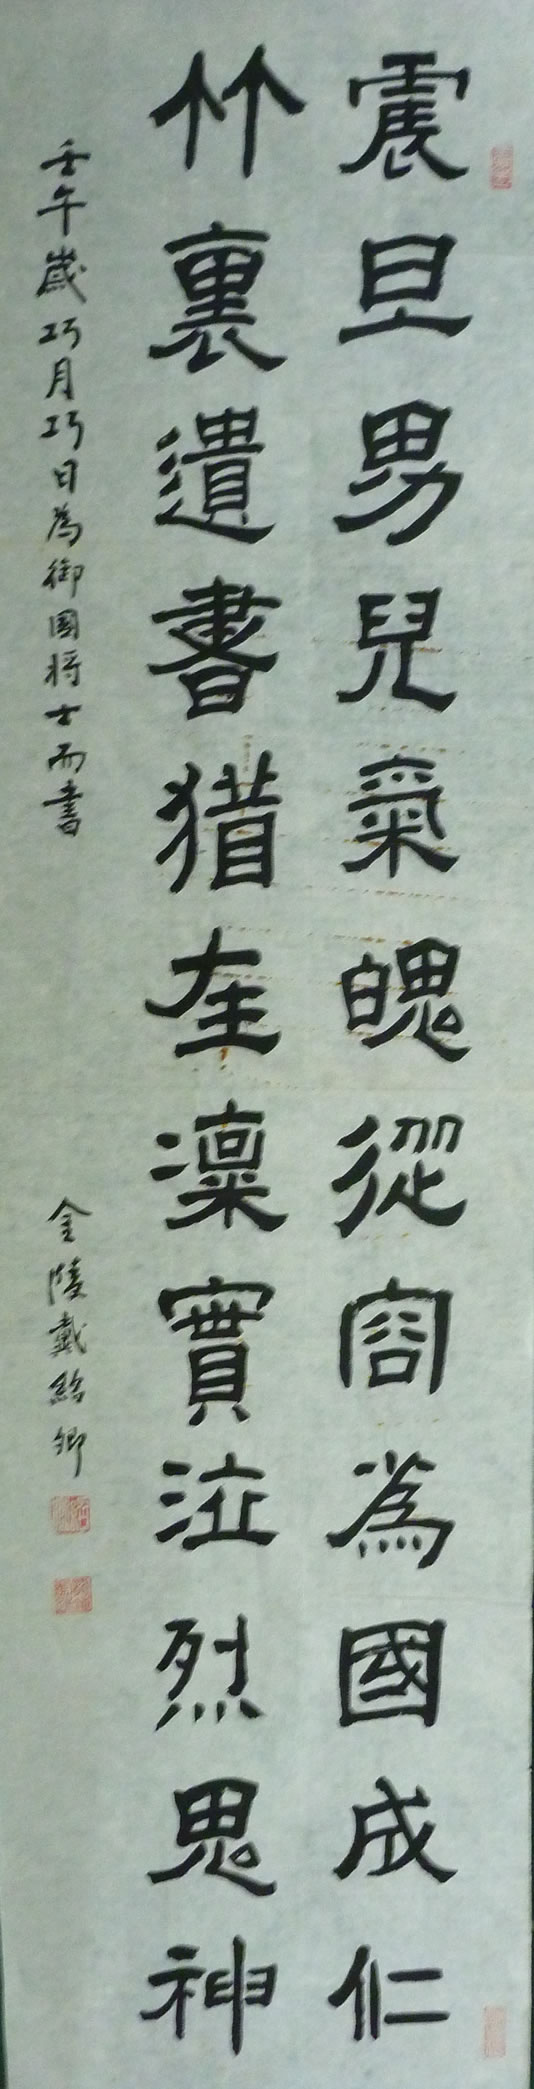 震旦男兒氣魄從容為國成仁
竹裏遺書猶在凜實泣烈鬼神
壬午歲巧月巧日為御國將士而書
金陵戴紹卿